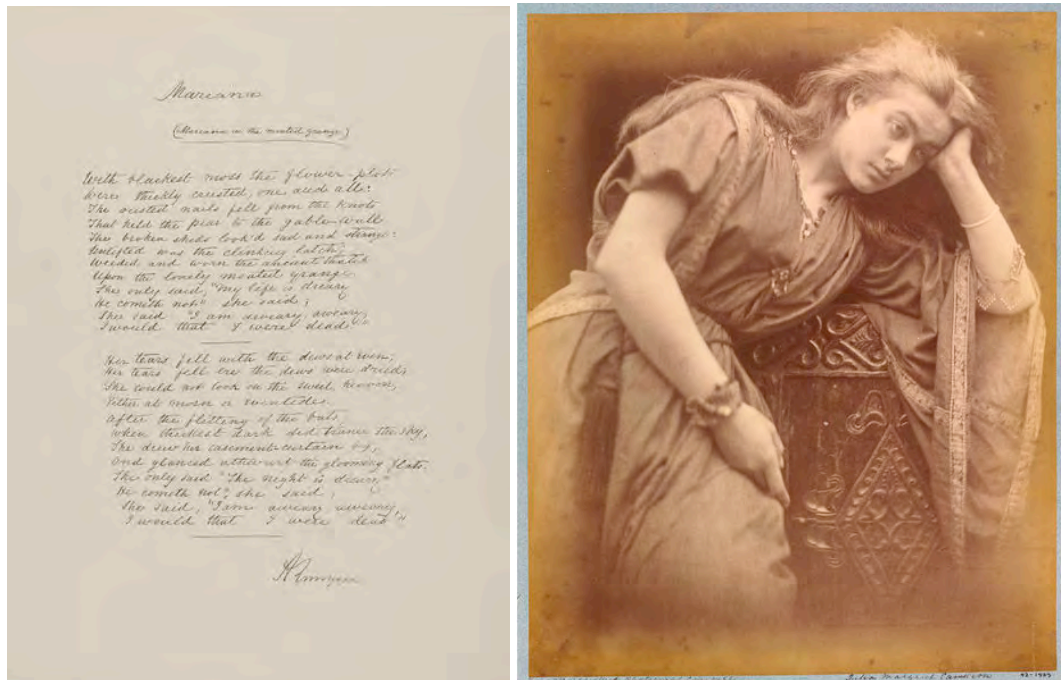 Mariana
(Mariana in the moated grange)
With blackest moss the flower-plots
Were thickly crusted, one and all:
The rusted nails fell from the knots
That held the pear to the gable-wall.
The broken sheds look'd sad and strange:
Unlifted was the clinking latch;
Weeded and worn the ancient thatch
Upon the lonely moated grange.
She only said, "My life is dreary
He cometh not," she said;
She said "I am aweary, aweary,
I would that I were dead."
Her tears fell with the dews at even;
Her tears fell ere the dews were dried;
She could not look on the sweet heaven,
Either at morn or eventide.
After the flitting of the bats,
When thickest dark did trance the sky,
She drew her casement-curtain by,
And glanced athwart the glooming flats.
She only said "The night is dreary
He cometh not," she said,
She said, "I am aweary, aweary,
I would that I were dead"
A Tennyson
Julia Margaret Cameron